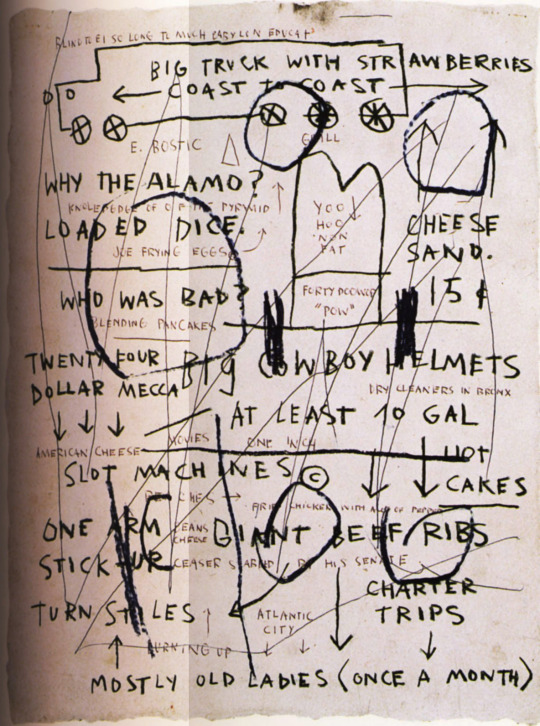 SO LONG TO MUCH BABYLON EDUCAT
BIG TRUCK WITH STRAWBERRIES
COAST TO COAST
E. BOSTIC
GRILL
WHY THE ALAMO?
KNOWLEPEDGE OF THE PYRAMID
YOO
HOO
NON
FAT
LOADED DICE.
CHEESE
SAND.
JOE FRYING EGGS
15 ¢
WHO WAS BAD?
"POW"
BLENDING PANCAKES
TWENTY FOUR
DOLLAR MECCA
BIG COWBOY HELMETS
DRY CLEANERS IN BRONX
AT LEAST 10 GAL
MOVIES
ONE INCH
AMERICAN CHEESE
HOT
CAKES
SLOT MACHINES ©
CHICKEN WITH
ONE ARM
STICK-UP
BEANS
CHEESE
GIANT BEEF RIBS
CEASER STABBED BY HIS SENATE
CHARTER
TRIPS
TURN STILES
ATLANTIC
CITY
BURNING UP
MOSTLY OLD LADIES (ONCE A MONTH)